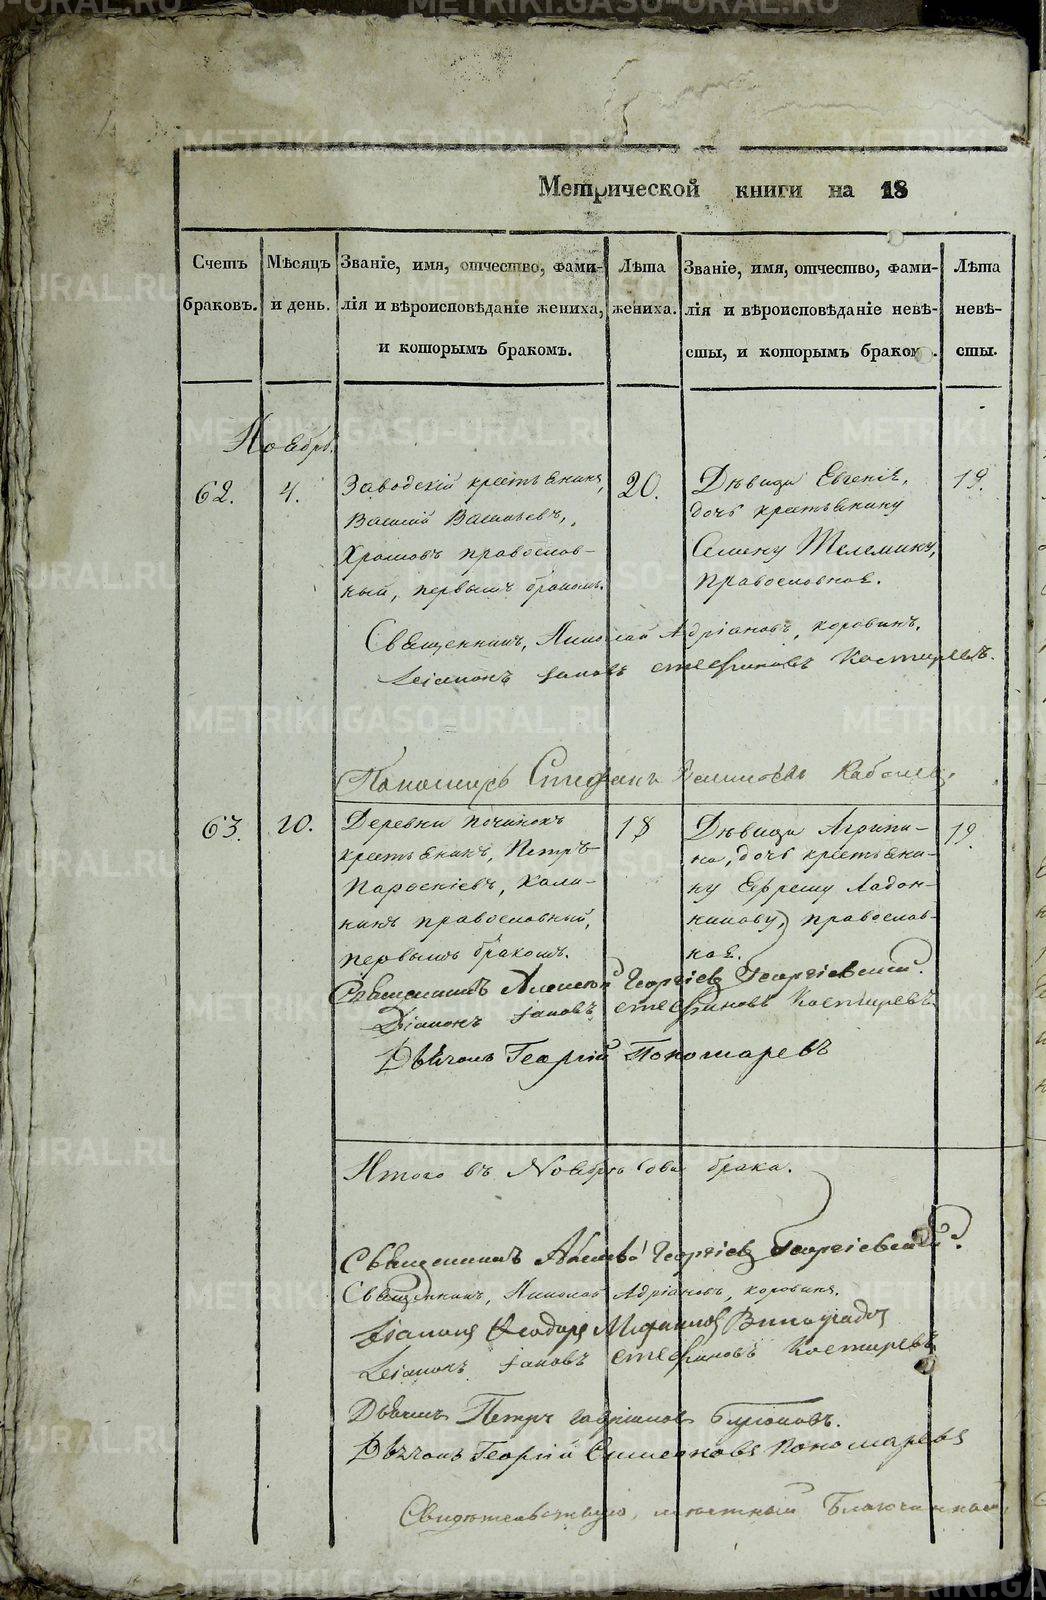 Метрической книги на 18
Счетъ браковъ.
Мѣсяцъ и день.
Званіе, имя, отчество, фами-
лія и вѣроисповѣданіе жениха,
и которымъ бракомъ.
Лѣта жениха.
Званіе, имя, отчество, фами-
лія и вѣроисповѣданіе невѣ-
сты, и которымъ браком.
Лѣта невѣ-
сты.
Ноябрь.
62.
4.
Заводскій крестьянинъ,
Василій Васильевъ,
Храмовъ православ-
ный, первымъ бракомъ.
20.
Дѣвица Евгенія,
дочь крестьянину
Семену Телемину,
православная.
19.
Священникъ, Николай Адріановъ, Коровинъ.
Діаконъ Іаковъ Стефановъ Костыревъ.
Пономарь Стефанъ
63.
10.
Деревни Починокъ
крестьянинъ, Петръ
Калининъ православный,
первымъ бракомъ.
18
Дѣвица Агрипи-
на, дочь крестьяни-
ну Ефрему
православ-
ная.
19.
Священникъ Алексѣй Георгіевъ Георгіевскій.
Діаконъ Іаковъ Стефановъ Костыревъ
Дьячокъ Георгій Пономаревъ
Итого въ Ноябрѣ два брака.
Священникъ Алексѣй Георгіевъ Георгіевскій.
Священникъ, Николай Адріановъ, Коровинъ.
Діаконъ Ѳеодоръ Виноградов
Діаконъ Іаковъ Стефановъ Костыревъ
Дьячекъ Петръ
Дьячокъ Георгій Симеоновъ Пономаревъ
Свидѣтельствовалъ мѣстный Благочинный
METRIKI.GASO-URAL.RU